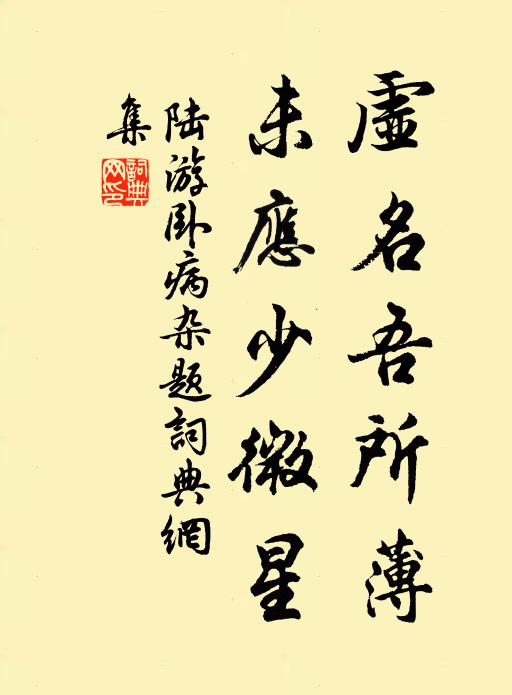 虛名吾所薄
未應少微星
陆游卧病杂题詞典網
集
詞典
网印